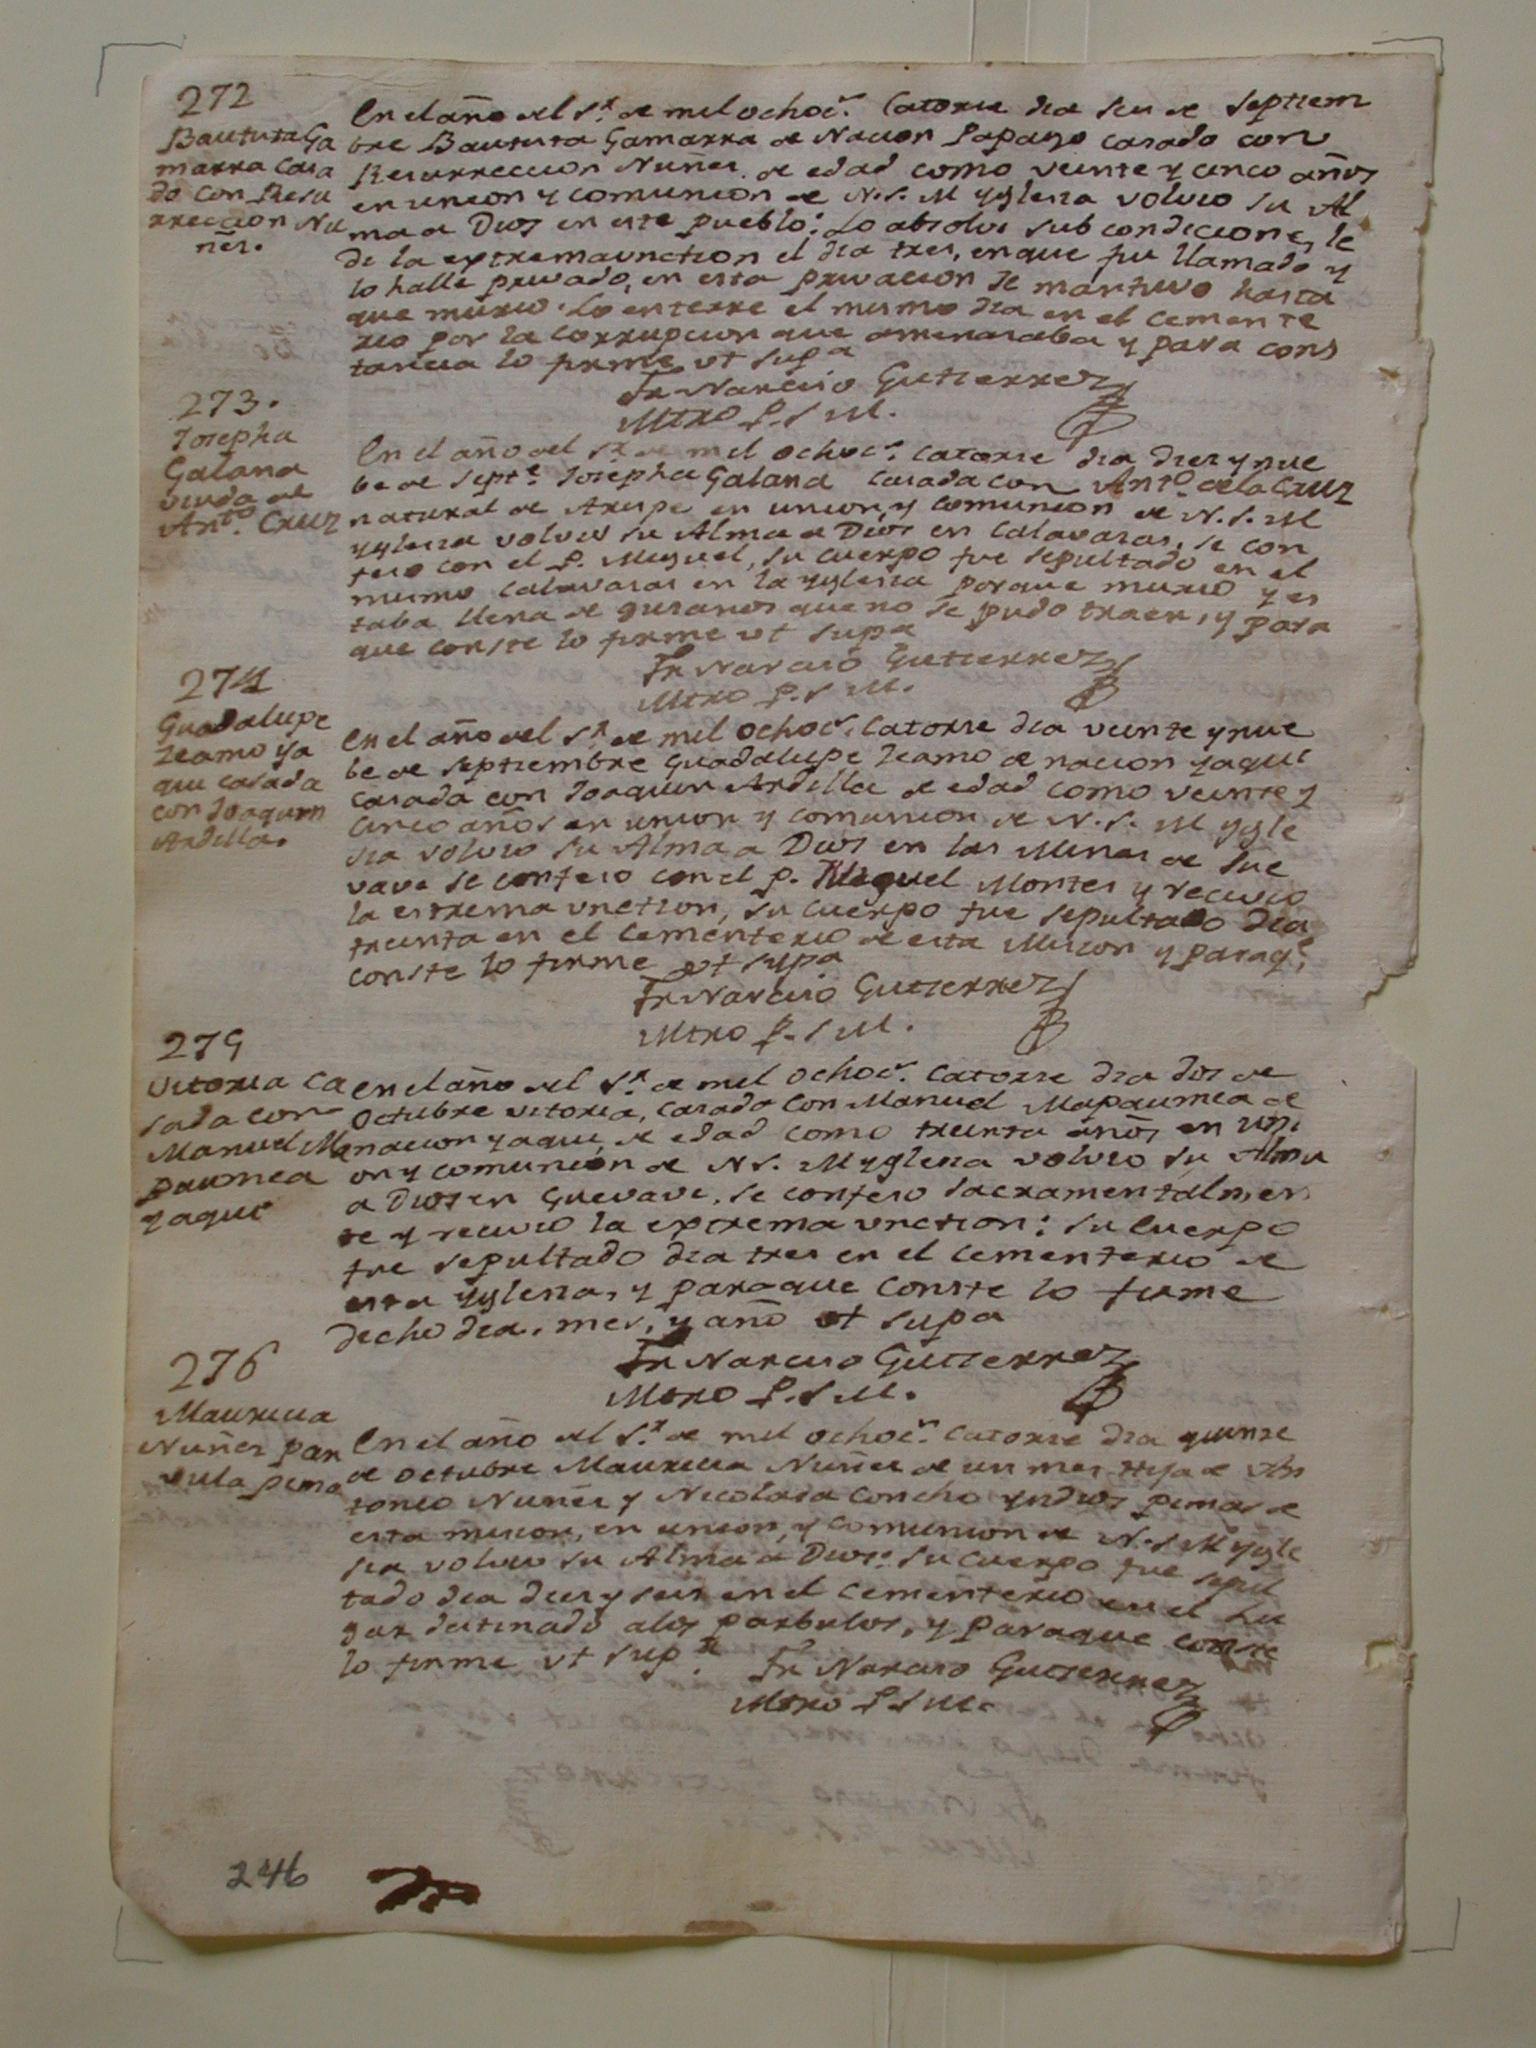 272
Bautista Ga
marra Casa
do con Resu
rreccion Nu
ñes.
En el año del Sr. de mil ochocs. Catorse dia seis de Septiem
bre Bautista Gamarra de Nacion Papago casado con
Resurreccion Nuñes de edad como veinte y cinco años
en union y comunion de N. S. M Yglesia volvio su Al
ma a Dios en este pueblo: Lo absolvi sub condicione, le
di la extremaunction el dia tres, en que fui llamado y
lo halle privado, en esta privacion se mantuvo hasta
que murio. Lo enterre el mismo dia en el cemente
rio por la corrupcion que amenasaba y para cons
tancia lo firme ut supa
Fr Narciso Gutierrez
Mtro P. S M.
273.
Josepha
Galana
viuda de
Anto. Cruz
En el año del Sr. de mil ochocs. catorse dia dies y nue
be de Septe. Josepha Galana casada con Anto. de la Cruz
natural de Arispe en union, y comunion de N. S. M
Yglesia volvio su Alma a Dios en Calavasas, se con
feso con el P. Miguel, su cuerpo fue sepultado en el
mismo Calavasas en la yglesia porque murio y es
taba llena de gusanos que no se pudo traer, y para
que conste lo firme ut supa
Fr Narciso Gutierrez
Mtro P. S M.
274
Guadalupe
Zeamo ya
qui casada
con Joaquin
Ardilla.
En el año del Sr. de mil ochocs. catorse dia veinte y nue
be de septiembre Guadalupe Zeamo de nacion yaqui
casada con Joaquin Ardilla de edad como veinte y
cinco años en union y comunion de N. S. M ygle
sia volvio su Alma a Dios en las Minas de Gue
vavi se confeso con el p. Miguel Montes y recivio
la estrema unction, su cuerpo fue sepultado dia
treinta en el cementerio de esta Mision y paraqe.
conste lo firme ut supa
Fr Narciso Gutierrez
Mtro P. S M.
275
Vitoria Ca
sada con
Manuel Ma
paumea
yaqui
en el año del Sr. de mil ochocs. Catorse dia dos de
Octubre vitoria, casada con Manuel Mapaumea de
nacion yaqui, de edad como treinta años en uni
on y comunion de N S. M yglesia volvio su Alma
a Dios en Guevavi, se confeso sacramentalmen
te y recivio la extrema unction: su cuerpo
fue sepultado dia tres en el cementerio de
esta Yglesia, y paraque conste lo firme
dicho dia, mes, y año ut supa
Fr Narciso Gutierrez
Mtro P. S M.
276
Mauricia
Nuñes par
vula pima
En el año del Sr. de mil ochocs. catorse dia quinse
de octubre Mauricia Nuñes de un mes Hija de An
tonio Nuñes y Nicolasa Concho yndios pimas de
esta mision, en union, y comunion de N. S M ygle
sia volvio su Alma a Dios: su cuerpo fue sepul
tado dia dies y seis en el cementerio en el Lu
gar destinado a los parbulos, y paraque conste
lo firme ut supa.
Fr Narciso Gutierrez
Mtro P. S M.
246